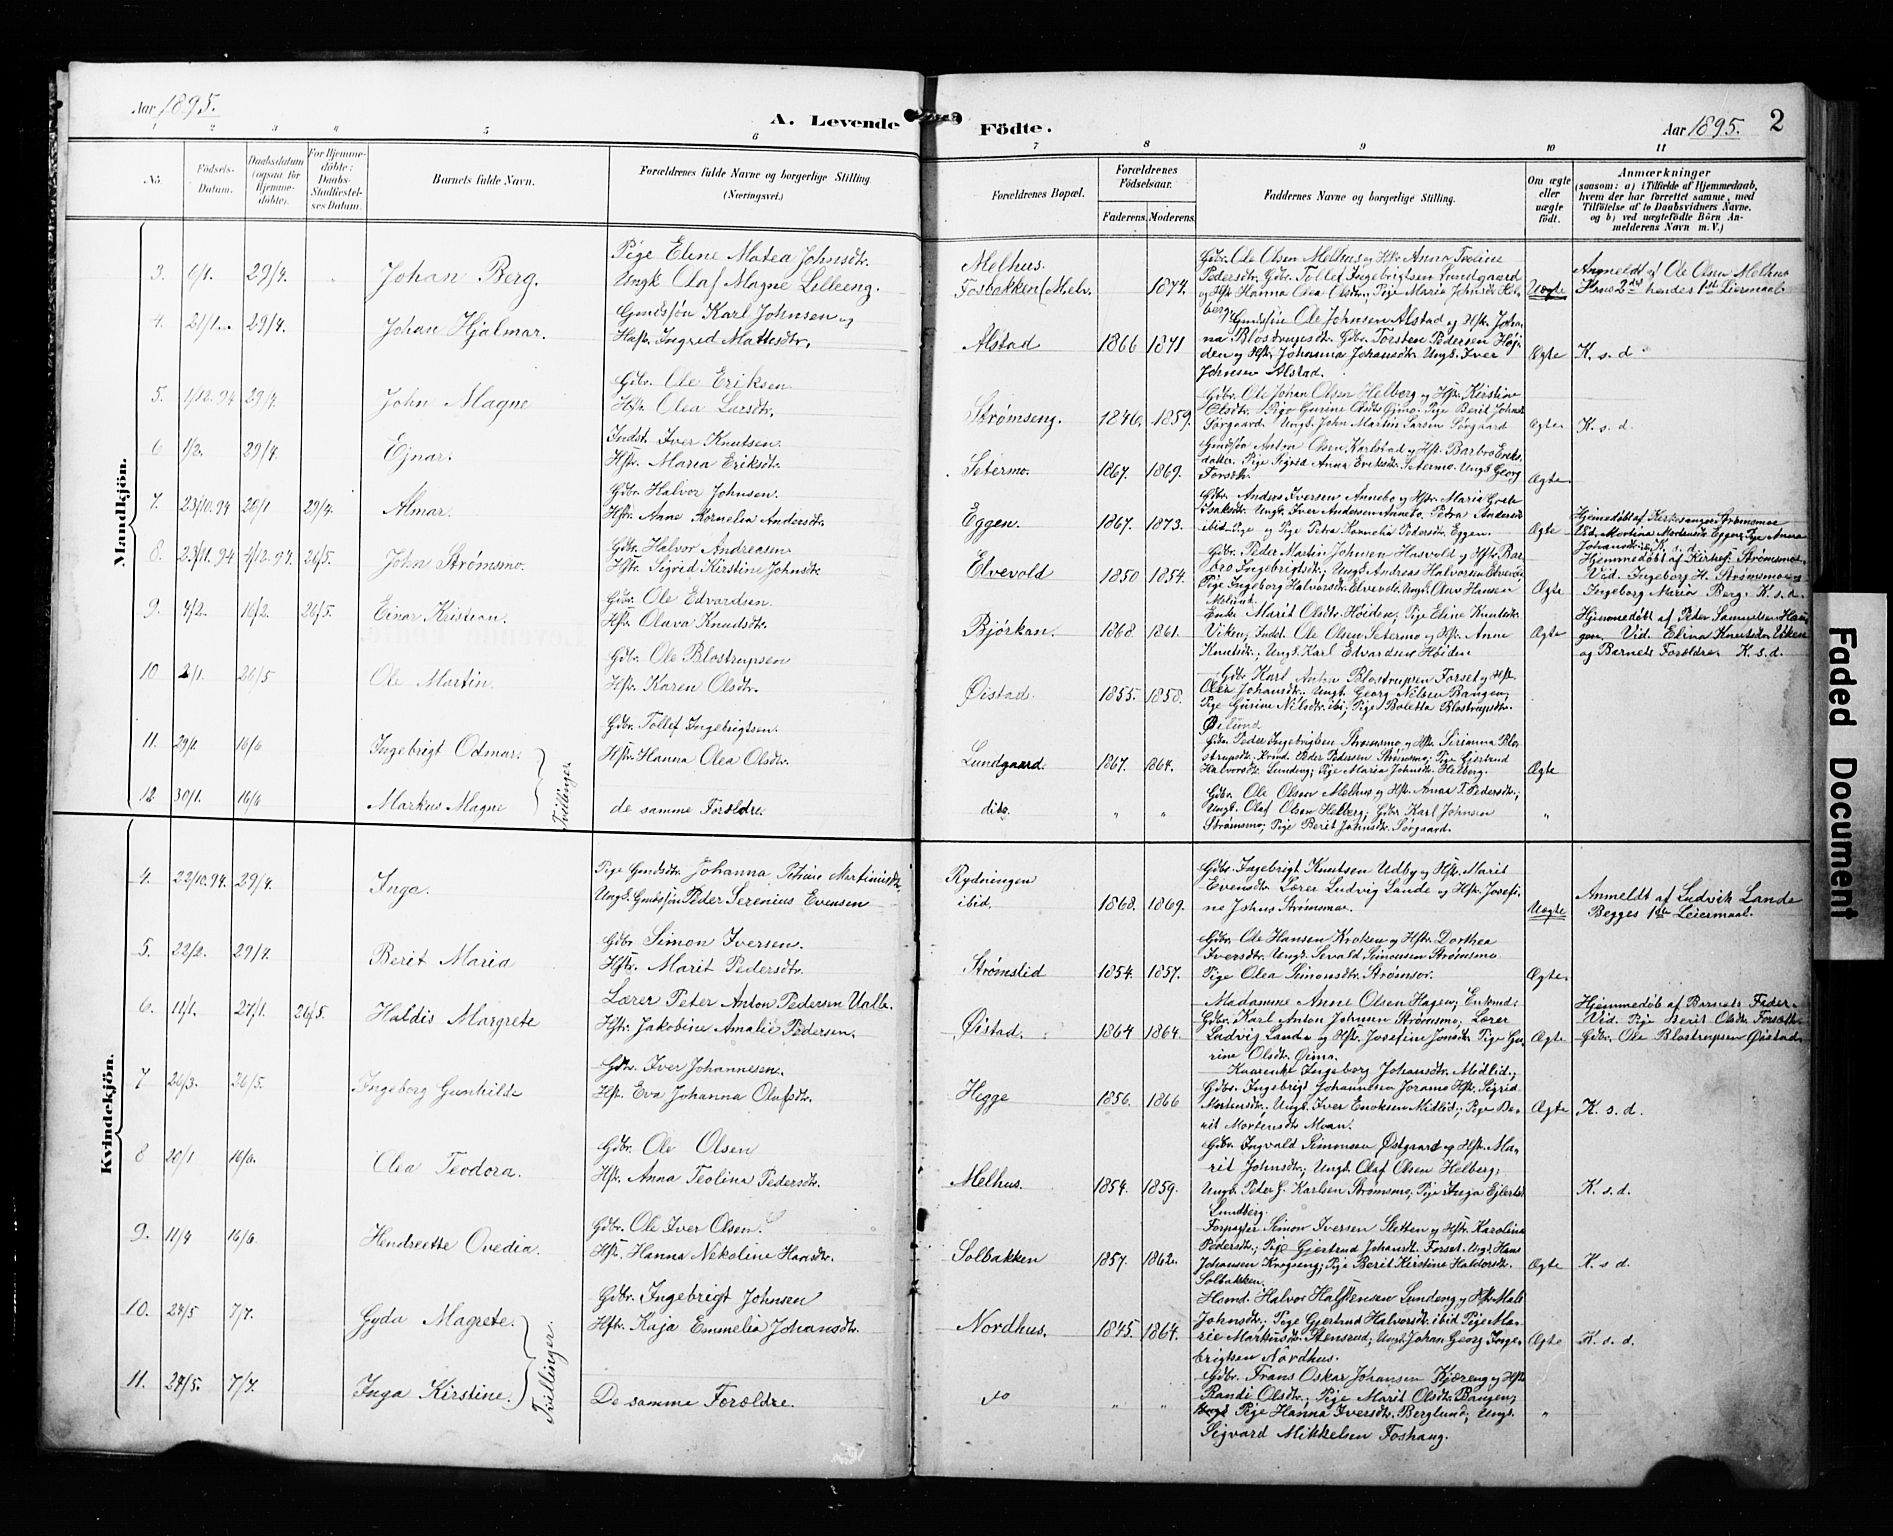 Aar 1895.
A. Levende
Födte.
Aar 1895. 2
1 2 3 4 5 6
7 8 9 10 11
No.
Födsels-Datum.
Daabsdatum (ogsaa for Hjemme-döbte).
For Hjemme-döbte: Daabs-Stadfæstel-ses Datum.
Barnets fulde Navn.
Forældrenes fulde Navne og borgerlige Stilling.
(Næringsvei.)
Forældrenes Bopæl.
Forældrenes Födselsaar.
Faderens. Moderens.
Faddernes Navne og borgerlige Stilling.
Om ægte eller uægte födt.
Anmærkninger
(saasom: a) i Tilfælde af Hjemmedaab,
hvem der har forrettet samme, med
Tilföielse af to Daabsvidners Navne,
og b) ved uægtefödte Börn An-
melderens Navn m. V.)
Mandkjön.
3. 6/1. 29/4. Johan Berg.
Pige Eline Matea Johnsdtr.
Ungk Olaf Magne Lilleeng.
Melhus.
Fosbakken (Melh. 1874.
Gdbr. Ole Olsen Melhus og Hstr. Anna Teoline
Pedersdtr. Gdbr. Tollef Ingebrigtsen Lundgaard
og Hstr Hanna Olea Olsdtr., Pige Maria Johnsdtr Hel-
berg.
Uægte
Anmeldt af Ole Olsen Melhus
Hans 2det hendes 1ste Leiermaal.
4. 21/1. 29/4. Johan Hjalmar.
Gmdssøn Karl Johnsen og
Hstr. Ingrid Mattisdtr.
Alstad 1866 1871
Gmdssøn Ole Johnsen Alstad og Hstr. Johan-
na Blostrupsdtr. Gdbr. Torsten Pedersen Høi-
den og Hstr. Johanna Johansdtr. Ungk. Iver
Johnsen Alstad.
Ægte K. s. d.
5. 1/12. 94 29/4. John Magne
Gdbr. Ole Eriksen.
Hstr. Olea Larsdtr.
Strømseng. 1846. 1859.
Gdbr. Ole Johan Olsen Helberg og Hstr. Kirstine
Olsdtr. Pige Gurine Olsdtr Gjmo. Pige Berit Johnsdtr
Sørgaard. Ungk. John Martin Larsen Sørgaard
Ægte K. s. d.
6 1/2. 29/4. Ejnar.
Indst. Iver Knutsen.
Hstr. Maria Eriksdtr.
Setermo. 1867. 1869.
Gmdssøn Anton Olsen Karlstad og Hstr. Barbro Eriks-
datter. Pige Sigrid Anna Eriksdtr. Setermo. Ungk Georg
Forseth.
Ægte
7. 23/10. 94 20/1 29/4. Almar.
Gdbr. Halvor Johnsen.
Hstr. Anne Kornelia Andersdtr.
Eggen. 1867. 1873.
Gdbr. Anders Iversen Annebo og Hstr. Maria Grete
Isaksdtr. Ungk. Iver Andersen Annebo. Petra Andersdtr
ibid Pige og Pige Petra Kornelia Pedersdtr. Eggen.
Ægte
Hjemedøbt af Kirkesanger Strømsmoe
Vid. Martina Mortensdtr Eggen, Pige Anna
Johansdtr. K. s. d.
8. 23/11. 94 4/12. 94. 26/5. John Strømsmo.
Gdbr. Halvor Andreasen
Hstr. Sigrid Kirstine Johnsdtr.
Elvevold 1850 1854.
Gdbr. Peder Martin Johnsen Hasvold og Hstr. Bar-
bro Ingebrigtsdtr. Ungk. Andreas Halvorsen Elvevold
Pige Ingeborg Halvorsdtr. Elvevold. Ungk. Olav Hansen
Molund.
Ægte
Hjemmedøbt af Kirkes. Strømsmoe.
Vid. Ingeborg H. Strømsmoe og
Ingeborg Maria Berg. K. s. d.
9. 4/2. 16/2. 26/5. Einar Kristian.
Gdbr. Ole Edvardsen.
Hstr Olava Knudsdtr.
Bjørkan. 1868. 1861.
Enke Marit Olsdtr. Høiden; Pige Eline Knudsdtr.
Viken; Indst. Ole Olsen Setermo og Hstr. Anne
Knutsdtr.; Ungk. Karl Edvardsen Høiden
Ægte
Hjemmedøbt af Peder Samuelsen Hau-
gen. Vid. Elina Knutsdtr Viken
og Barnets Forældre. K. s. d.
10 2/1. 26/5 Ole Martin.
Gdbr. Ole Blostrupsen
Hstr. Karen Olsdtr.
Øistad. 1855. 1858.
Gdbr Karl Anton Blostrupsen Forset og Hstr.
Olea Johansdtr. Ungk. Georg Nilsen Bangen;
Pige Gurine Nilsdtr. ibi; Pige Boletta Blostrupsdtr.
Øilund
11. 29/1. 16/6 Ingebrigt Odmar.
Gdbr. Tollef Ingebrigtsen.
Hstr. Hanna Olea Olsdtr.
Tvillinger.
Lundgaard. 1867. 1864.
Gdbr. Peder Ingebrigtsen Strømsmo og Hstr. Serianna Blo-
strupsdtr. Peder Pedersen Strømsmo; Pige Gjertrud
Halvorsdtr. Lundeng; Pige Maria Johnsdtr. Helberg.
Ægte
12 30/1. 16/6 Markus Magne
de samme Forældre.
dito. " "
Gdbr. Ole Olsen Melhus og Hstr. Anna T. Pedersdtr.;
Ungk. Olaf Olsen Helberg; Gdbr. Karl Johnsen
Strømsmo; Pige Berit Johnsdtr. Sørgaard.
"
Kvindekjön.
4. 22/10. 94. 29/4. Inga.
Pige Gmdsdtr. Johanna Petrine Martiniusdtr.
Ungk. Gmdssøn Peder Serenius Evensen
Rydningen
ibid. 1868. 1869.
Gdbr. Ingebrigt Knutsen Udby og Hstr. Marit
Evensdtr. Lærer Ludvig Lande og Hstr. Josefi-
ne Johns Strømsmo.
Uægte
Anmeldt af Ludvik Lande
Begges 1ste Leiermaal.
5. 22/2. 29/4. Berit Maria
Gdbr Simon Iversen.
Hstr. Marit Pedersdtr.
Strømslid 1854. 1857.
Gdbr. Ole Hansen Kroken og Hstr. Dorthea
Iversdtr. Ungk. Sevald Simonsen Strømsmo
Pige Olea Simonsdtr. Strømsor.
Ægte
6. 11/1. 27/1. 26/5. Haldis Margrete
Lærer Peter Anton Pedersen Valle.
Hstr. Jakobine Amalie Pedersen.
Øistad. 1864 1864.
Madamme Anne Olsen Hagen; Enkmd.
Gdbr. Karl Anton Johnsen Strømsmo, Lærer
Ludvig Lande og Hstr. Josefine Jonsdtr. Pige Gu-
rine Olsdtr. Øimo.
Ægte
Hjemmedøb. af Barnets Fader.
Vid. Pige Berit Olsdtr Forseth.
Gdbr. Ole Blostrupsen Øistad.
7 26/3. 26/5. Ingeborg Gunhilde
Gdbr. Iver Johannesen.
Hstr. Eva Johanna Olafsdtr.
Hegge 1856. 1866
Kaarenke Ingeborg Johansdtr. Midlid;
Gdbr. Ingebrigt Johannesen Joramo Hstr. Sigrid
Mortensdtr.; Ungk. Iver Enoksen Midlid; Pige Be-
rit Mortensdtr Moan.
Ægte K. s. d.
8 20/1 16/6. Olea Teodora.
Gdbr. Ole Olsen
Hstr. Anna Teolina Pedersdtr.
Melhus. 1854. 1859.
Gdbr. Ingvald Simonsen Østgaard og Hstr. Ma-
rit Johnsdtr; Ungk. Olaf Olsen Helberg;
Ungk. Peder G. Karlsen Strømsmo; Pige Inga Ejlertsdtr
Lundberg.
K. s. d.
9. 11/4 16/6. Hendreette Ovedia.
Gdbr. Ole Iver Olsen.
Hstr. Hanna Nekoline Hansdtr.
Solbakken 1857. 1862.
Forpagter Simon Iversen Sletten og Hstr. Karolina
Pedersdtr.; Pige Gjertrud Johansdtr. Forset. Ungk. Hans
Johansen Krogseng; Pige Berit Kirstine Haldorsdtr.
Solbakken.
Ægte K. s. d.
10. 24/5 7/7. Gyda Magrete.
Gdbr. Ingebrigt Johnsen
Hstr. Kaja Emmelia Johansdtr.
Tvillinger.
Nordhus. 1845. 1864.
Halvor Halstensen Lundeng og Hstr. Mali
Johnsdtr.; Pige Gjertrud Halvorsdtr. ibid Pige Ma-
rie Markusdtr. Stensrud; Ungk Johan Georg Inge-
brigtsen Nordhus.
Ægte K. s. d.
11. 24/5. 7/7. Inga Kirstine.
De samme Forældre.
do " "
Gdbr. Frans Oskar Johansen Kjæreng og Hstr
Randi Olsdtr.; Pige Marit Olsdtr. Bangen;
Pige Hanna Iversdtr. Berglund; Ungk.
Sigvard Mikkelsen Foshaug.
"
Faded Document